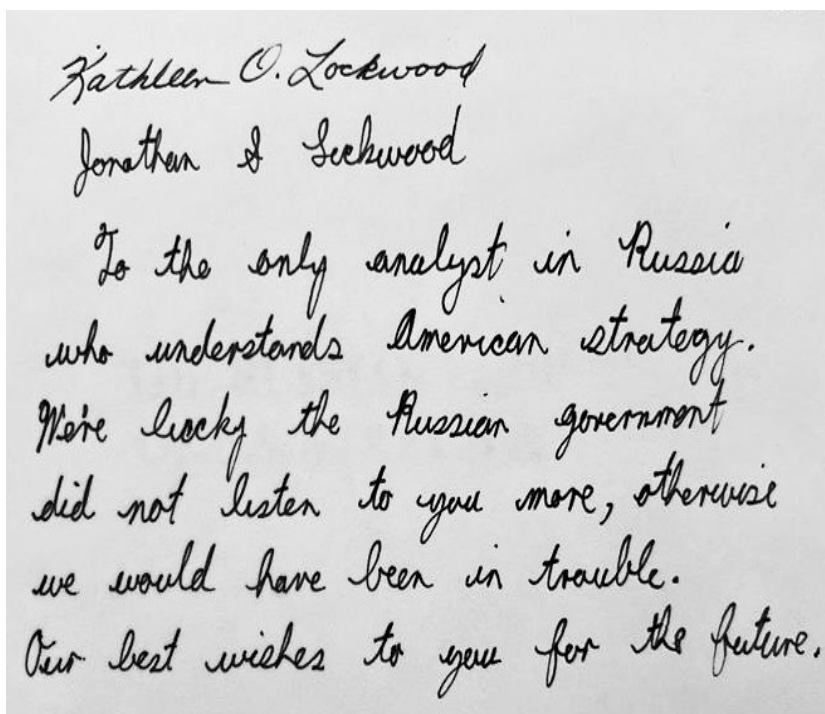 Kathleen O. Lockwood
Jonathan S Lockwood
To the only analyst in Russia
who understands American strategy.
We're lucky the Russian government
did not listen to you more, otherwise
we would have been in trouble.
Our best wishes to you for the future.